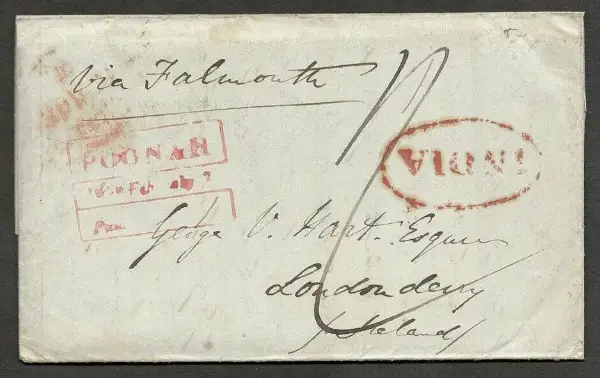 via Falmouth
POONAH
Feb
INDIA
George V. Hart Esquire
Londonderry
Ireland